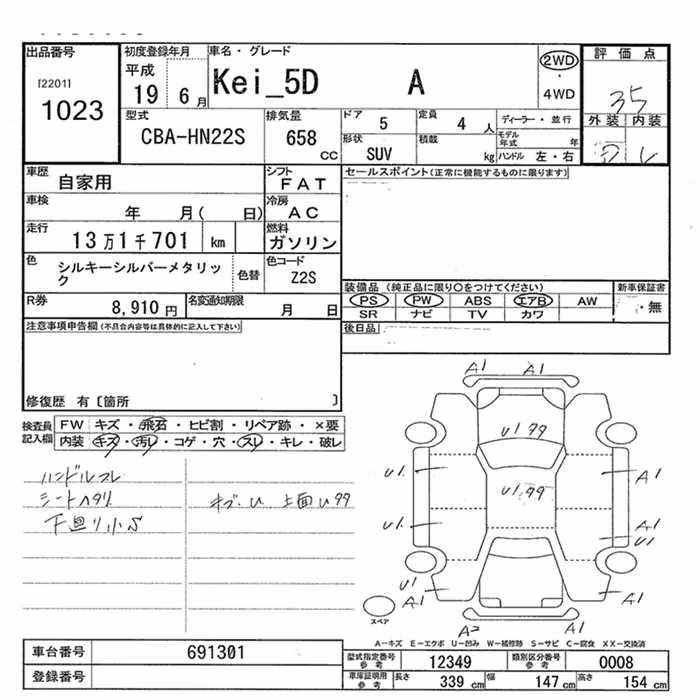 出品番号 初度登録年月 車名・グレード 評価点
[2201] 平成 Kei_5D A 2WD
1023 19 6月 ・ 35
4WD
型式 排気量 ドア 5 定員 4人 ディーラー・並行 外装 内装
CBA-HN22S 658 cc 形状 SUV 積載 kg モデル年式 年
ハンドル 左・右
車歴 自家用 シフト FAT セールスポイント(正常に機能するものに限ります)
車検 年 月( 日) 冷房 AC
走行 13万1千701 km 燃料 ガソリン
色 シルキーシルバーメタリック 色替 色コード Z2S
装備品 (純正品に限り○をつけてください) 新車保証書
R券 8,910円 名変通知期限 月 日 PS PW ABS エアB AW ・無
SR ナビ TV カワ
注意事項申告欄(不具合内容等は具体的に記入して下さい) 後日品
修復歴 有〔箇所 〕
検査員記入欄 FW キズ・飛石・ヒビ割・リペア跡・×要
内装 キズ・汚レ・コゲ・穴・スレ・キレ・破レ
ハンドルスレ
シートヘタリ キズ・U 上面U99
下廻り小S
A1 A1
U1 99
U1 A1
U1,99
U1 A1
U1
U1
A1 A1
A2 A1
スペア
A-キズ E-エクボ U-凹み W-補修跡 S-サビ C-腐食 XX-交換済
車台番号 691301 型式指定番号 参考 12349 類別区分番号 参考 0008
登録番号 車庫証明用 参考 長さ 339cm 幅 147cm 高さ 154cm